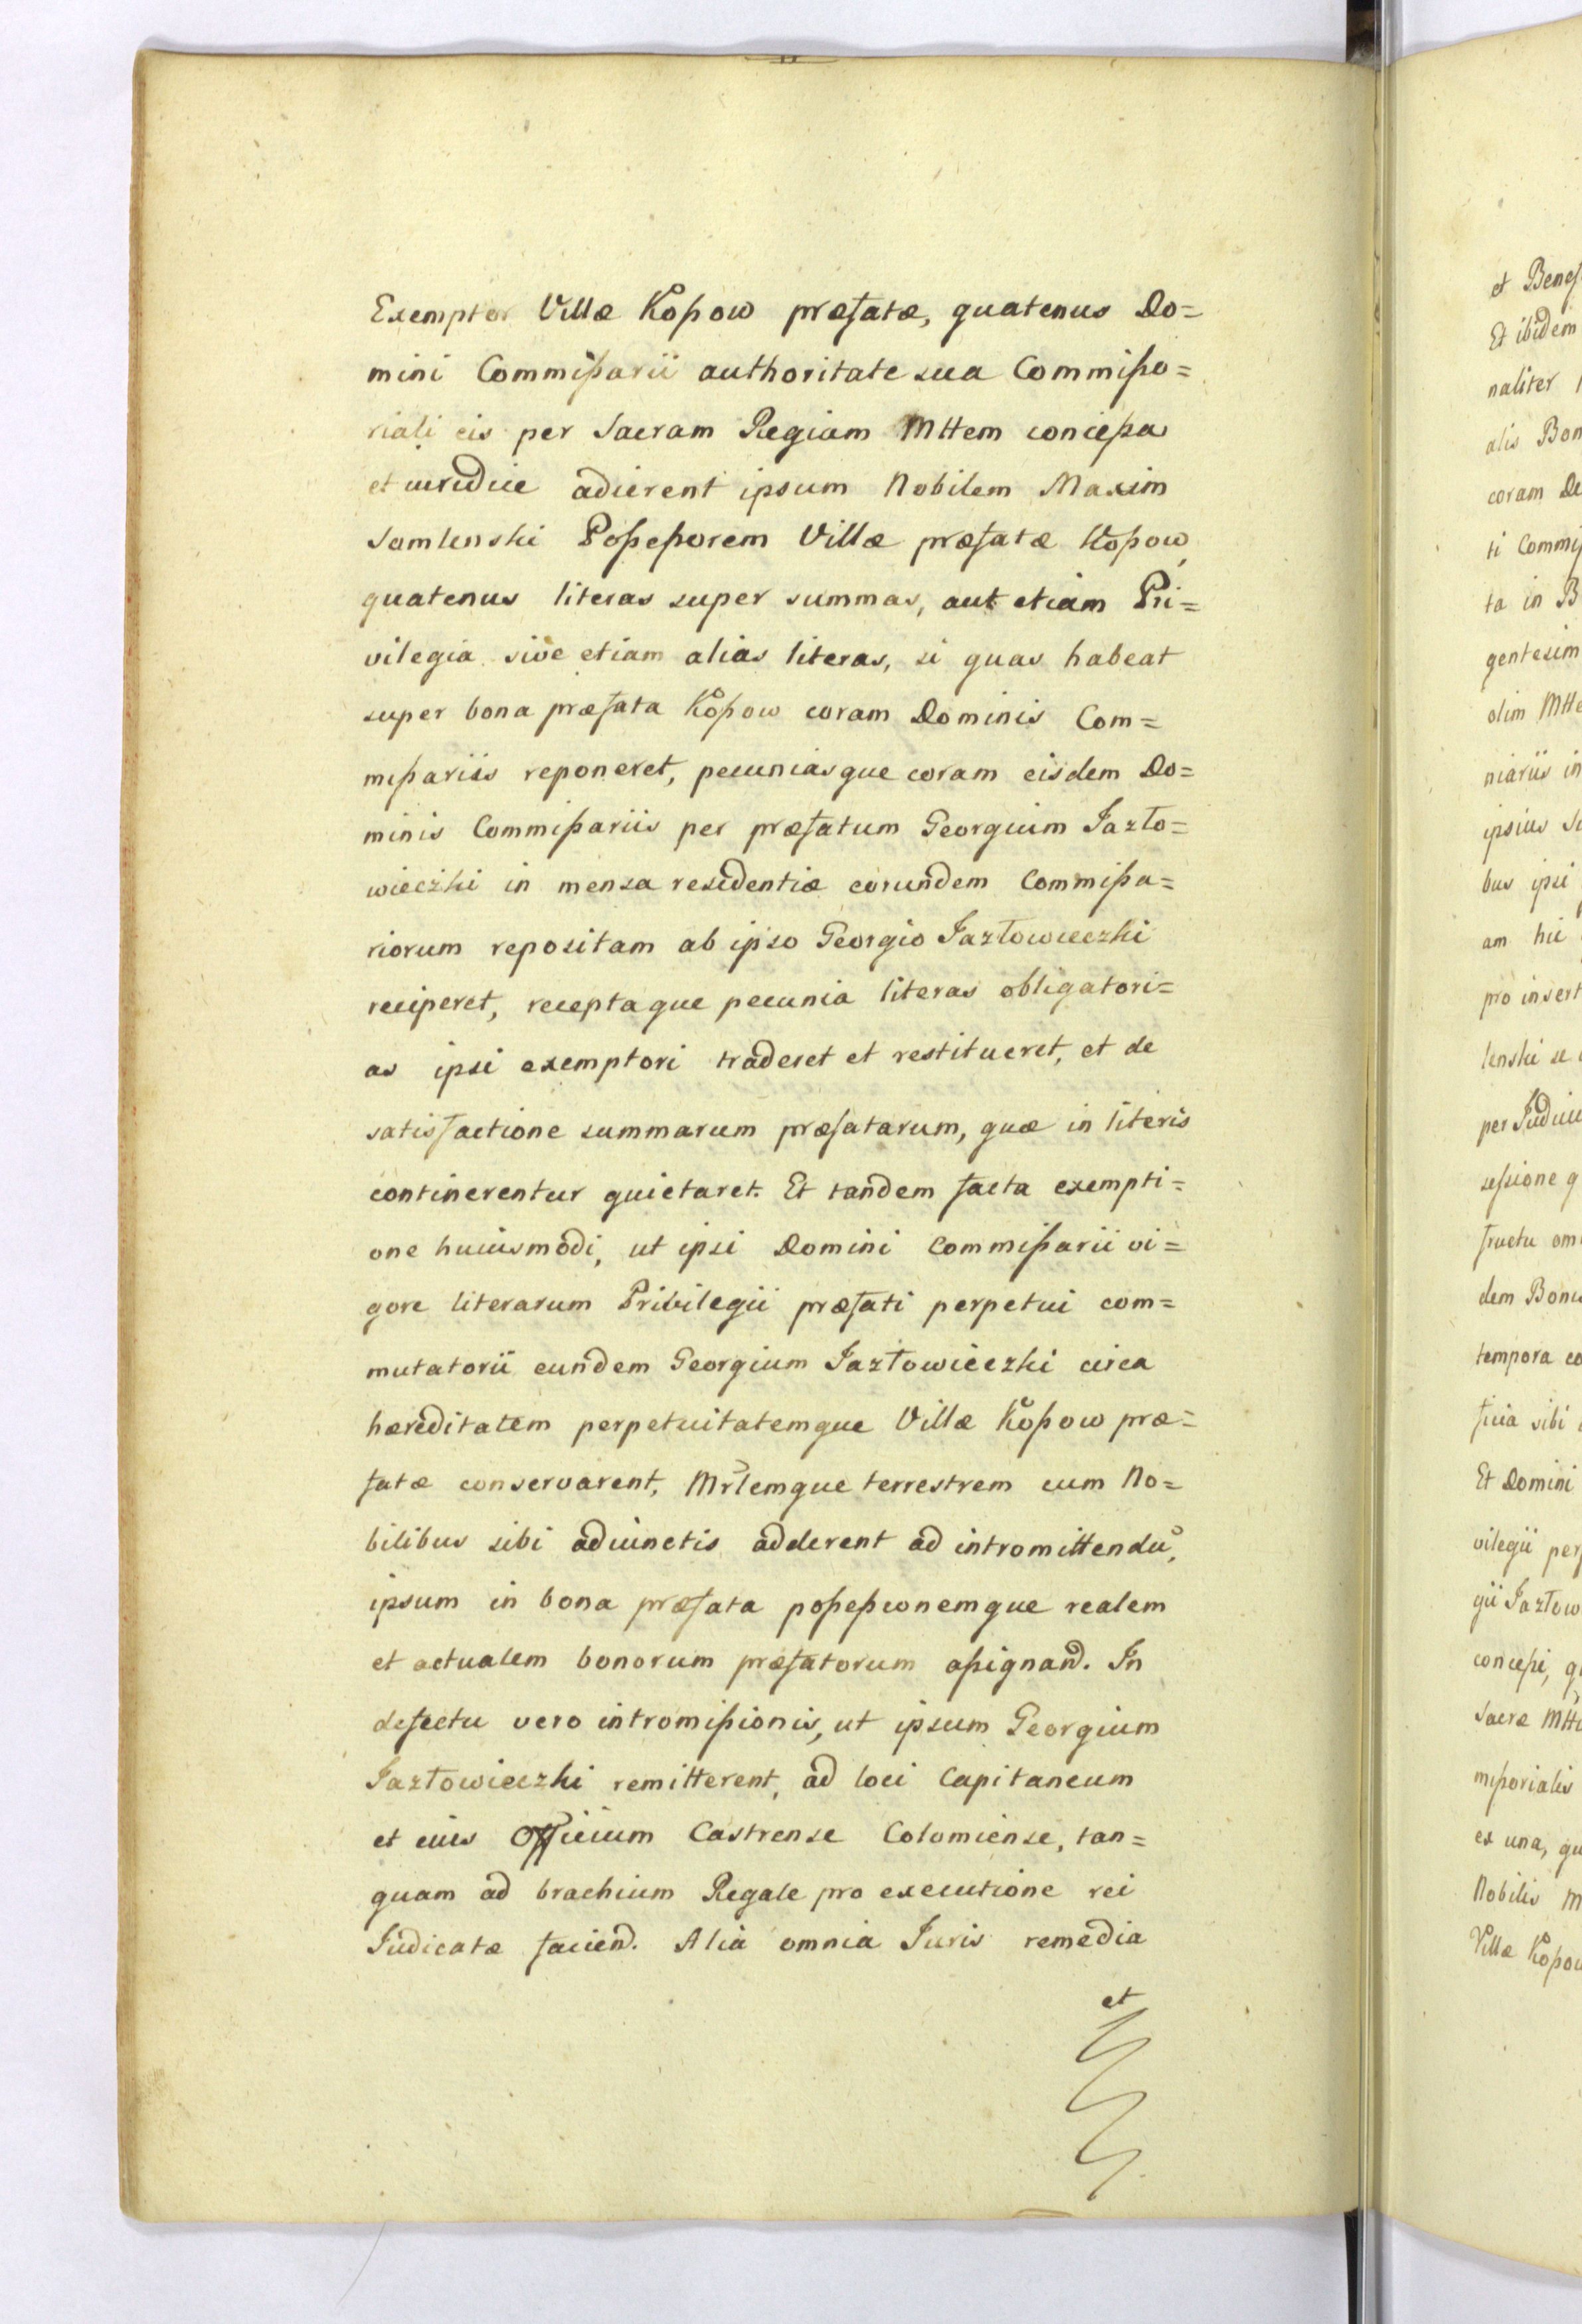 Exemptor Villæ Kossow præfatæ, quatenus Do=
mini Commissarii authoritate sua Commisso=
riali eis per Sacram Regiam Mttem concessa
et iuridice adicrent ipsum Nobilem Maxim
Samlenski Possessorem Villæ præfatæ Kossow,
quatenus literas super summas, aut etiam Pri=
vilegia sive etiam alias literas, si quas habeat
super bona præfata Kossow coram Dominis Com=
missariis reponeret, pecuniasque coram eisdem Do=
minis Commissariis per præfatum Georgium Jazło=
wieczki in mensa residentiæ eorundem Commissa=
riorum repositam ab ipso Georgio Jazłowieczki
reciperet, receptaque pecunia literas obligatori=
as ipsi exemptori traderet et restitueret, et de
satisfactione summarum præfatarum, quæ in literis
continerentur quietaret. Et tandem facta exempti=
one huiusmodi, ut ipsi Domini Commissarii vi=
gore literarum Pribilegii præfati perpetui com=
mutatorii eundem Georgium Jazłowieczki circa
hæreditatem perpetuitatemque Villæ Kossow præ=
fatæ conservarent, Mrlemque terrestrem cum No=
bilibus sibi adiunctis adderent ad intromittendu,
ipsum in bona præfata possessionemque realem
et actualem bonorum præfatorum assignand. In
defectu vero intromissionis, ut ipsum Georgium
Jazłowieczki remitterent, ad loci Capitaneum
et eius Officium Castrense Colomiense, tan=
quam ad brachium Regale pro executione rei
Judicatæ faciend. Alia omnia Juris remedia
et
et Benef
Et ibidem
naliter
alis Bon
coram De
ti Commis
ta in B
gentesim
olim Mtte
niariis in
ipsius Sa
bus ipsi
am hic
pro insert
lenski se
per Judiciu
sessione q
fructu om
dem Bonis
tempora co
ficia sibi
Et Domini
vilegii per
gii Jazłow
concessi, q
Sacræ Mtt
missorialis
ex una, qu
Nobilis M
Villæ Kossow